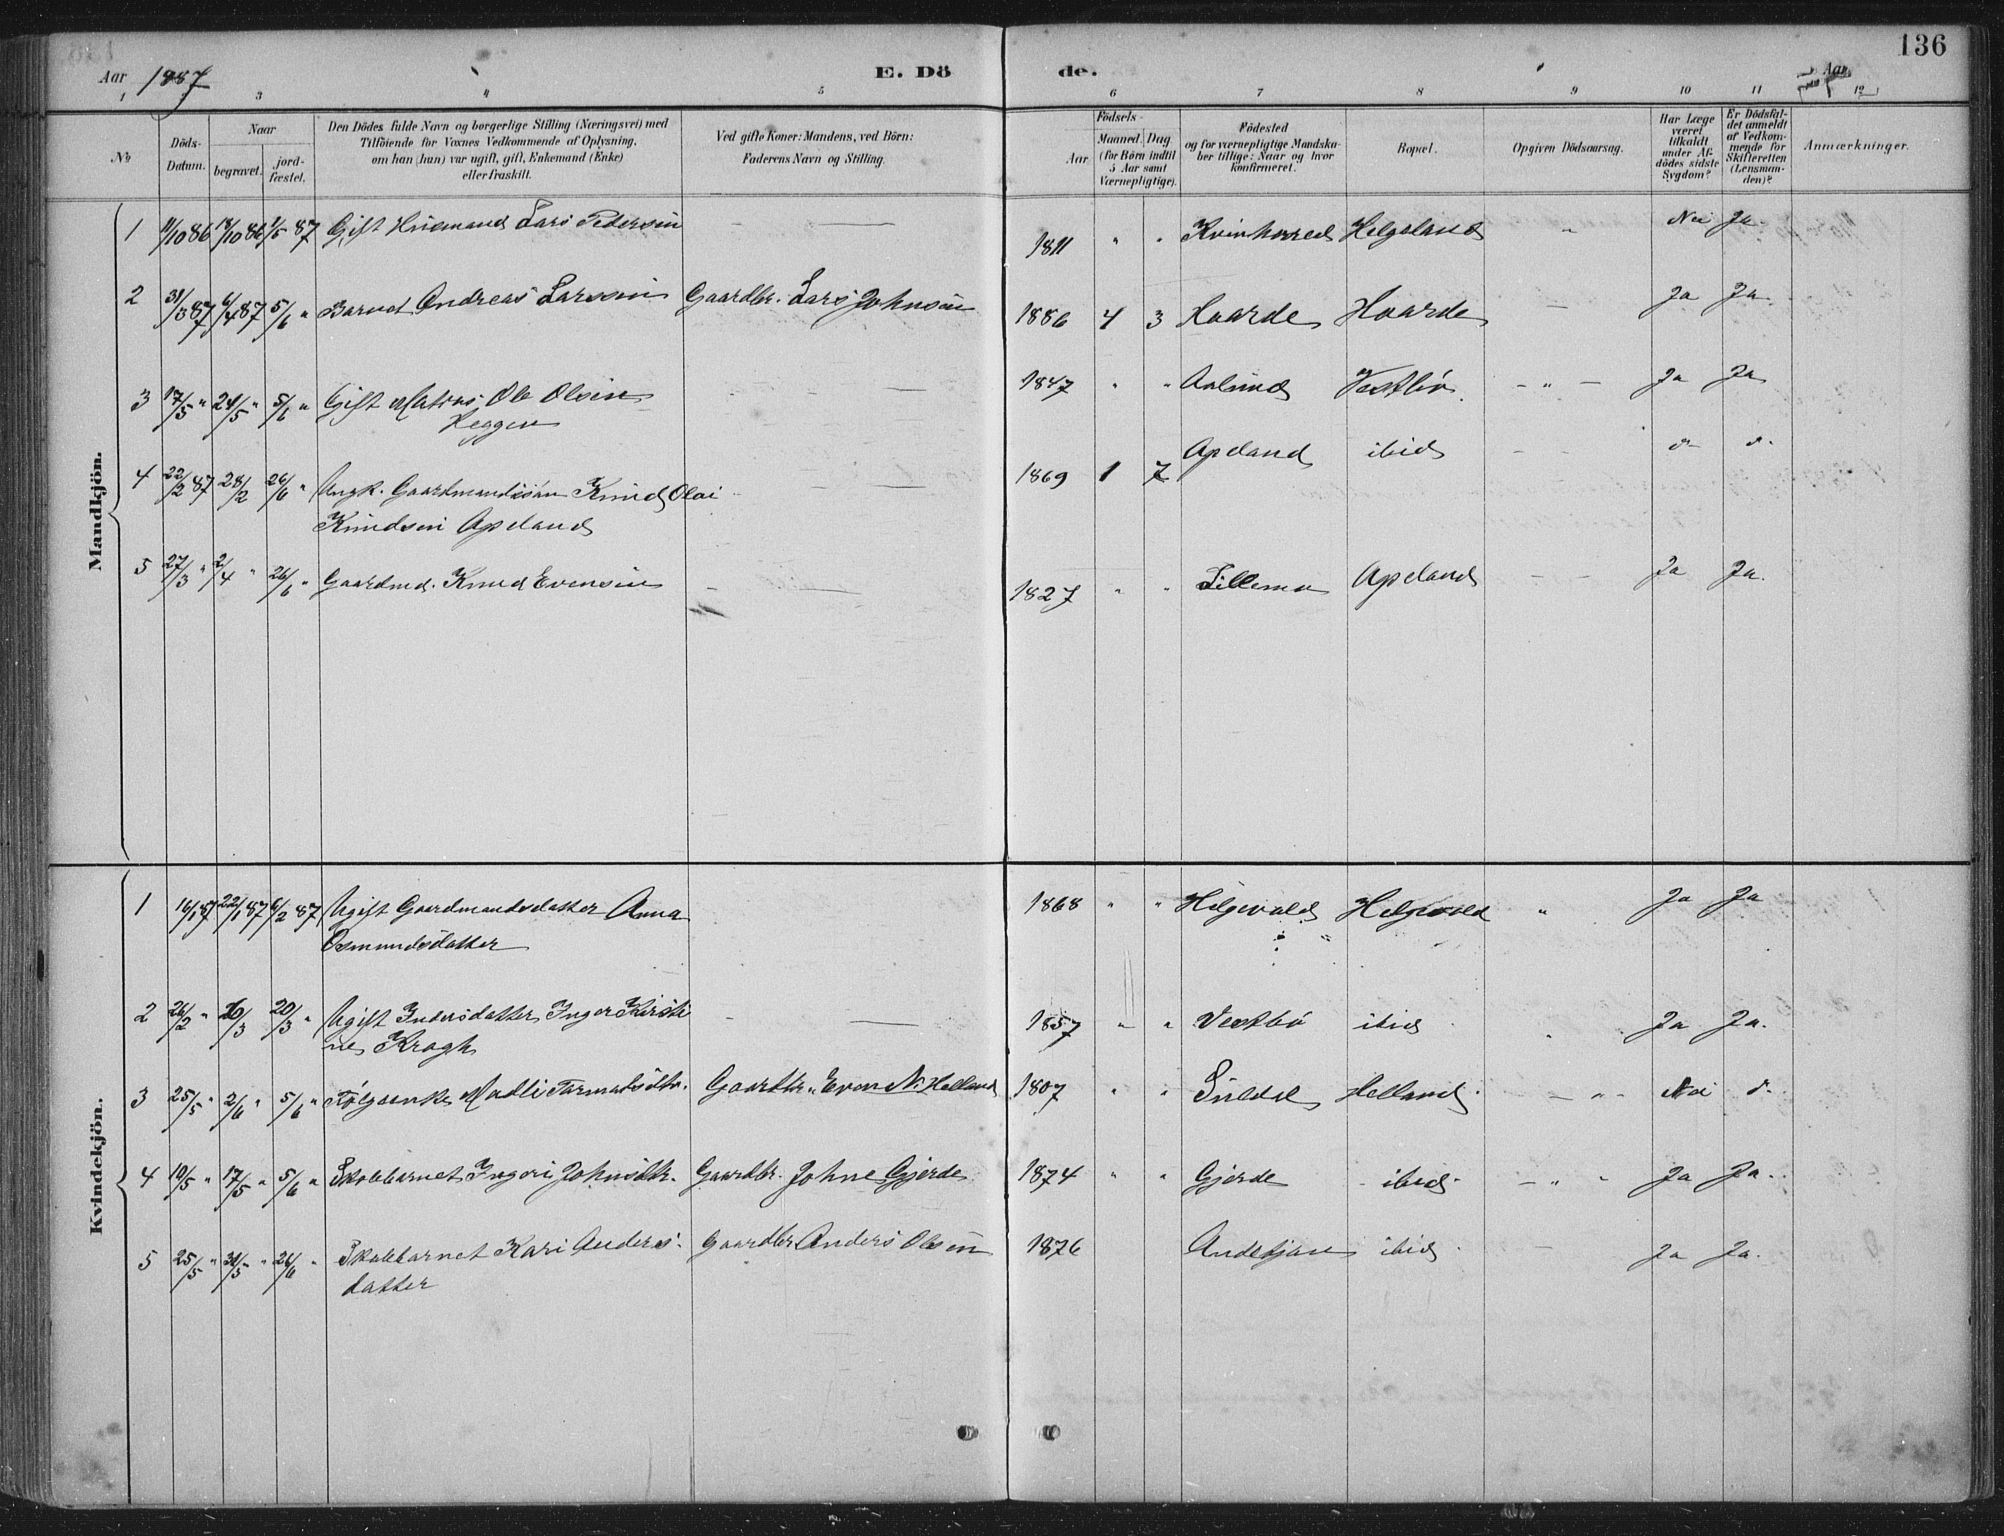 136
Aar 1887 E. Dö de. Aar
1 2 3 4 5 6 7 8 9 10 11 12
No
Döds-Datum.
Naar begravet. jordfæstet.
Den Dödes fulde Navn og borgerlige Stilling (Næringsvei) med
Tilföiende for Voxnes Vedkommende af Oplysning,
om han (hun) var ugift, gift, Enkemand (Enke)
eller fraskilt.
Ved gifte Koner: Mandens, ved Börn:
Faderens Navn og Stilling.
Födsels-
Aar. Maaned. Dag
(for Börn indtil
5 Aar samt
Værnepligtige).
Födested
og for værnepligtige Mandskaber
tillige: Naar og hvor
konfirmeret.
Bopæl.
Opgiven Dödsaarsag.
Har Læge
været
tilkaldt
under Afdödes
sidste
Sygdom?
Er Dödsfaldet
anmeldt
af Vedkommende
for
Skifteretten
(Lensmanden)?
Anmærkninger.
Mandkjön.
1 11/10 86 18/10 86 1/5 87 Gift Huusmand Lars Pedersen — — 1811 " " Kvinherred Helgeland " Nei Ja.
2 31/3 87 6/4 87 5/6 " Barnet Andreas Larssen Gaardbr. Lars Johnsen 1886 4 3 Hoarde Hoarde — Ja Ja
3 17/5 " 24/5 " 5/6 " Gift Matros Ole Olsen — — 1847 " " Aalund Vestbö. — " — Ja Ja
Heggen
4 22/2 87 28/2 26/6 " Ungk. Gaardmandssön Knud Olai — — 1869 1 7 Apeland ibid — — d- d-
Knudsen Apeland
5 27/3 " 2/4 " 26/6 " Gaardmd. Knud Evensen — — 1827 " " Lillemo Apeland — — Ja Ja.
Kvindekjön.
1 16/1 87 22/1 87 6/2 87 Ugift Gaardmandsdatter Anna 1868 " " Helgevold Helgevold " Ja Ja
Osmundsdatter
2 26/2 " /3 20/3 " Ugift Indersdatter Inger Kirsti — — 1857 " " Vestbö ibid " Ja Ja.
ne Kragh
3 25/5 " 2/6 " 5/6 " Fölgeenke Madli Tormodsdtr. Gaardbr. Even N. Helland 1807 " " Suldal Helland. — " - Nei d-
4 10/5 " 17/5 " 5/6 " Skolebarnet Ingeri Johnsdtr. Gaardbr. Johne Gjerde 1874 " " Gjerde - ibid. — " - Ja Ja.
5 25/5 " 31/5 " 26/6 " Skolebarnet Kari Anders- Gaardbr. Anders Olsen 1876 ibid. — Ja Ja.
datter